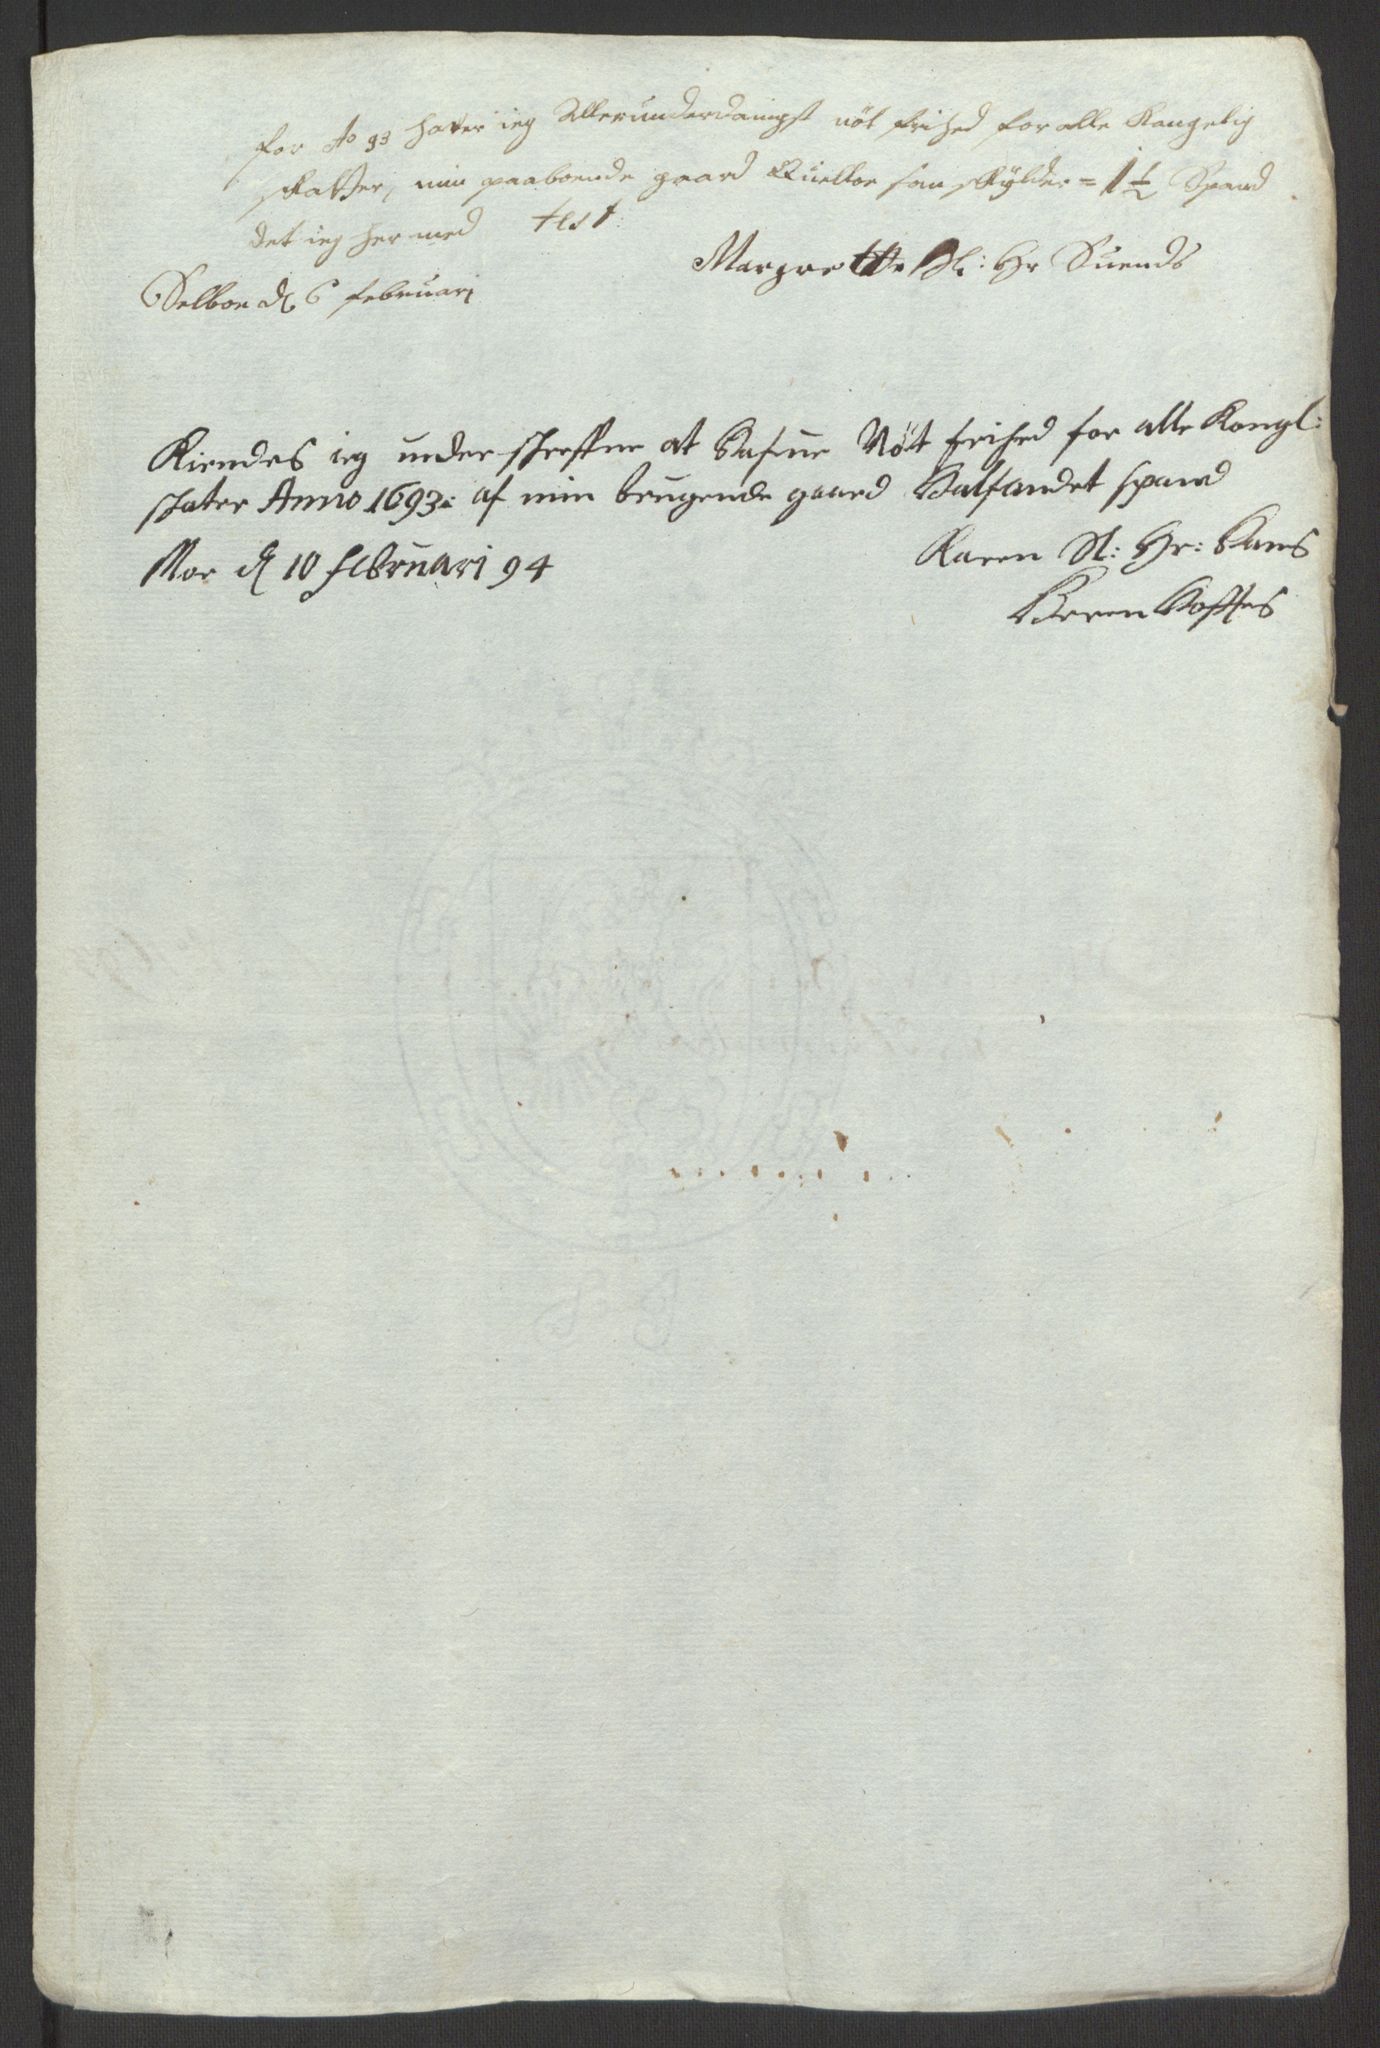 for Ao 93 hafver ieg Allerunderdanigst nöt frihed for alle Kongelig
skatter, min paaboende gaard Quelloe som skylder = 1 1/2 Spand
det ieg her med test:
Margrette Sl: Hr Suends
Selboe d 6 februari
Kiendes ieg underschreffne at hafue Nöt frihed for alle Kongl:
skater Anno 1693: af min brugende gaard halfandet spand
Moe d 10 februari 94
Karen Sl: Hr: Hans